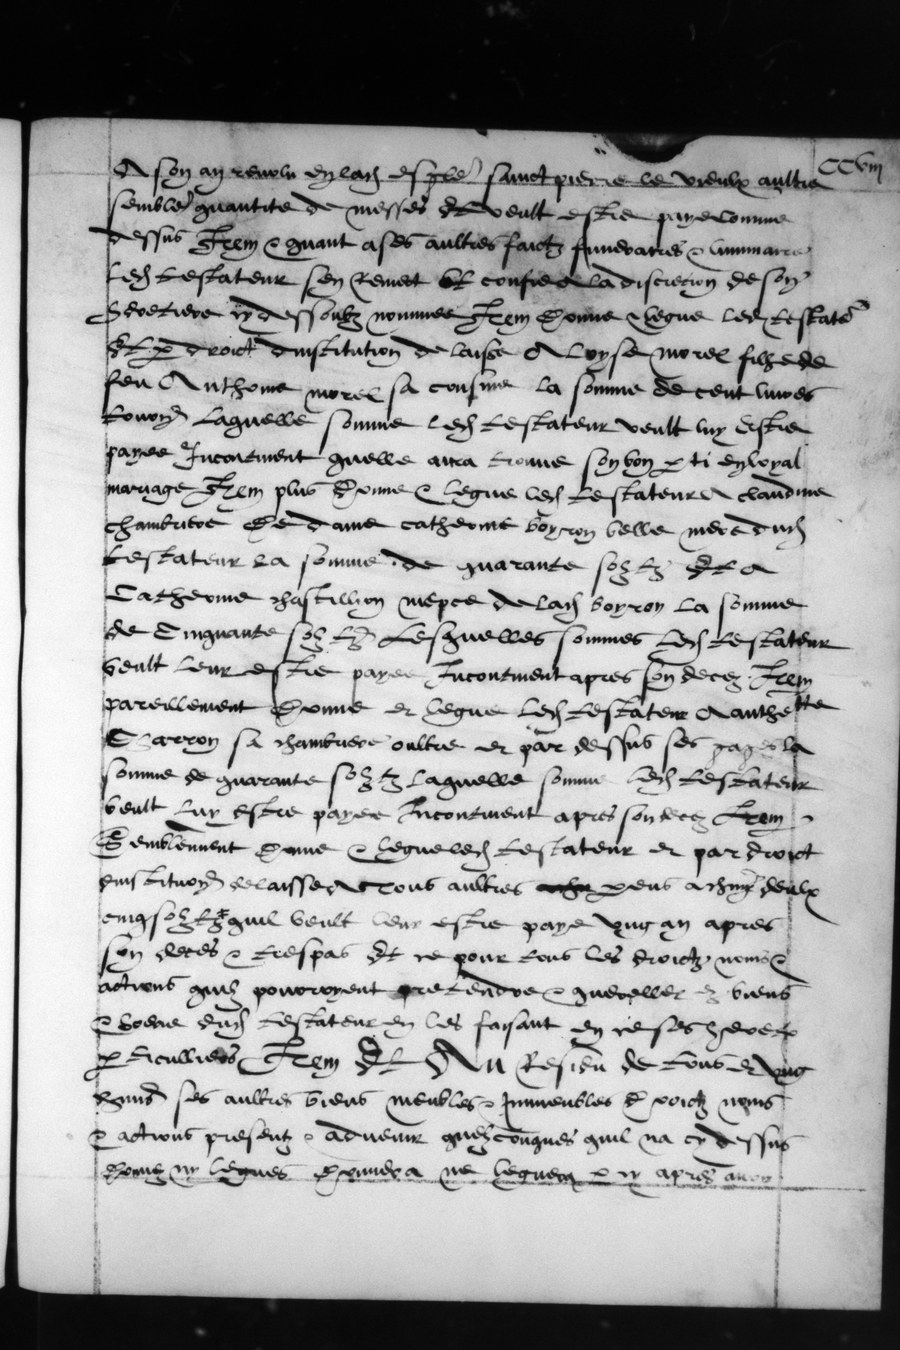 CCVIII
A son an revolu en lad esgle sainct pierre le vieulx aultre
semble quantite de messes Et veult estre paye comme
dessus Item & quant a ses aultres faictz funeraires & luminaire
led testateur sen remect et confie a la discretion de son
heretiere cy dessoubz nommee Item donne & legue led testateur
Et p droict dinstitution delaisse A loyse morel filhe de
feu Anthoine morel sa cousine la somme de cent livres
tourn laquelle somme led testateur veult luy estre
payee Incontinent quelle aura trouve son bon p ti en loyal
mariage Item plus donne & legue led testateur a claudine
chambriere de dame catherine boyron belle mere dud
testateur la somme de quarante solz tz Et a
Catherine chastillion niepce de lad boyron la somme
de Cinquante solz tz Lesquelles sommes led testateur
veult leur estre payee Incontinent apres son deces Item
pareillement donne et legue led testateur A anthe tte
Charron sa chambriere oultre et par dessus ses gages la
somme de quarante solz tz laquelle somme led testateur
veult luy estre payee Incontinent apres son deces Item
Semblement donne & legue led testateur et par droict
dinstitution delaisse a tous aultres pens a chun deulx
cinq solz tz quil veult leur estre paye ung an apres
son deces & trespas Et ce pour tous les droictz noms &
actions quilz pourroyent pretendre & quereller es biens
& hoerie dud testateur en les faisant en ce ses heretiers
p ticulliers Item Et Au Residu de tous et ung
chuns ses aultres biens meubles & Immeubles droictz noms
& actions presentz & advenir quelzconques quil na cy dessus
donne ny legues donnera ne leguera p cy apres avoir